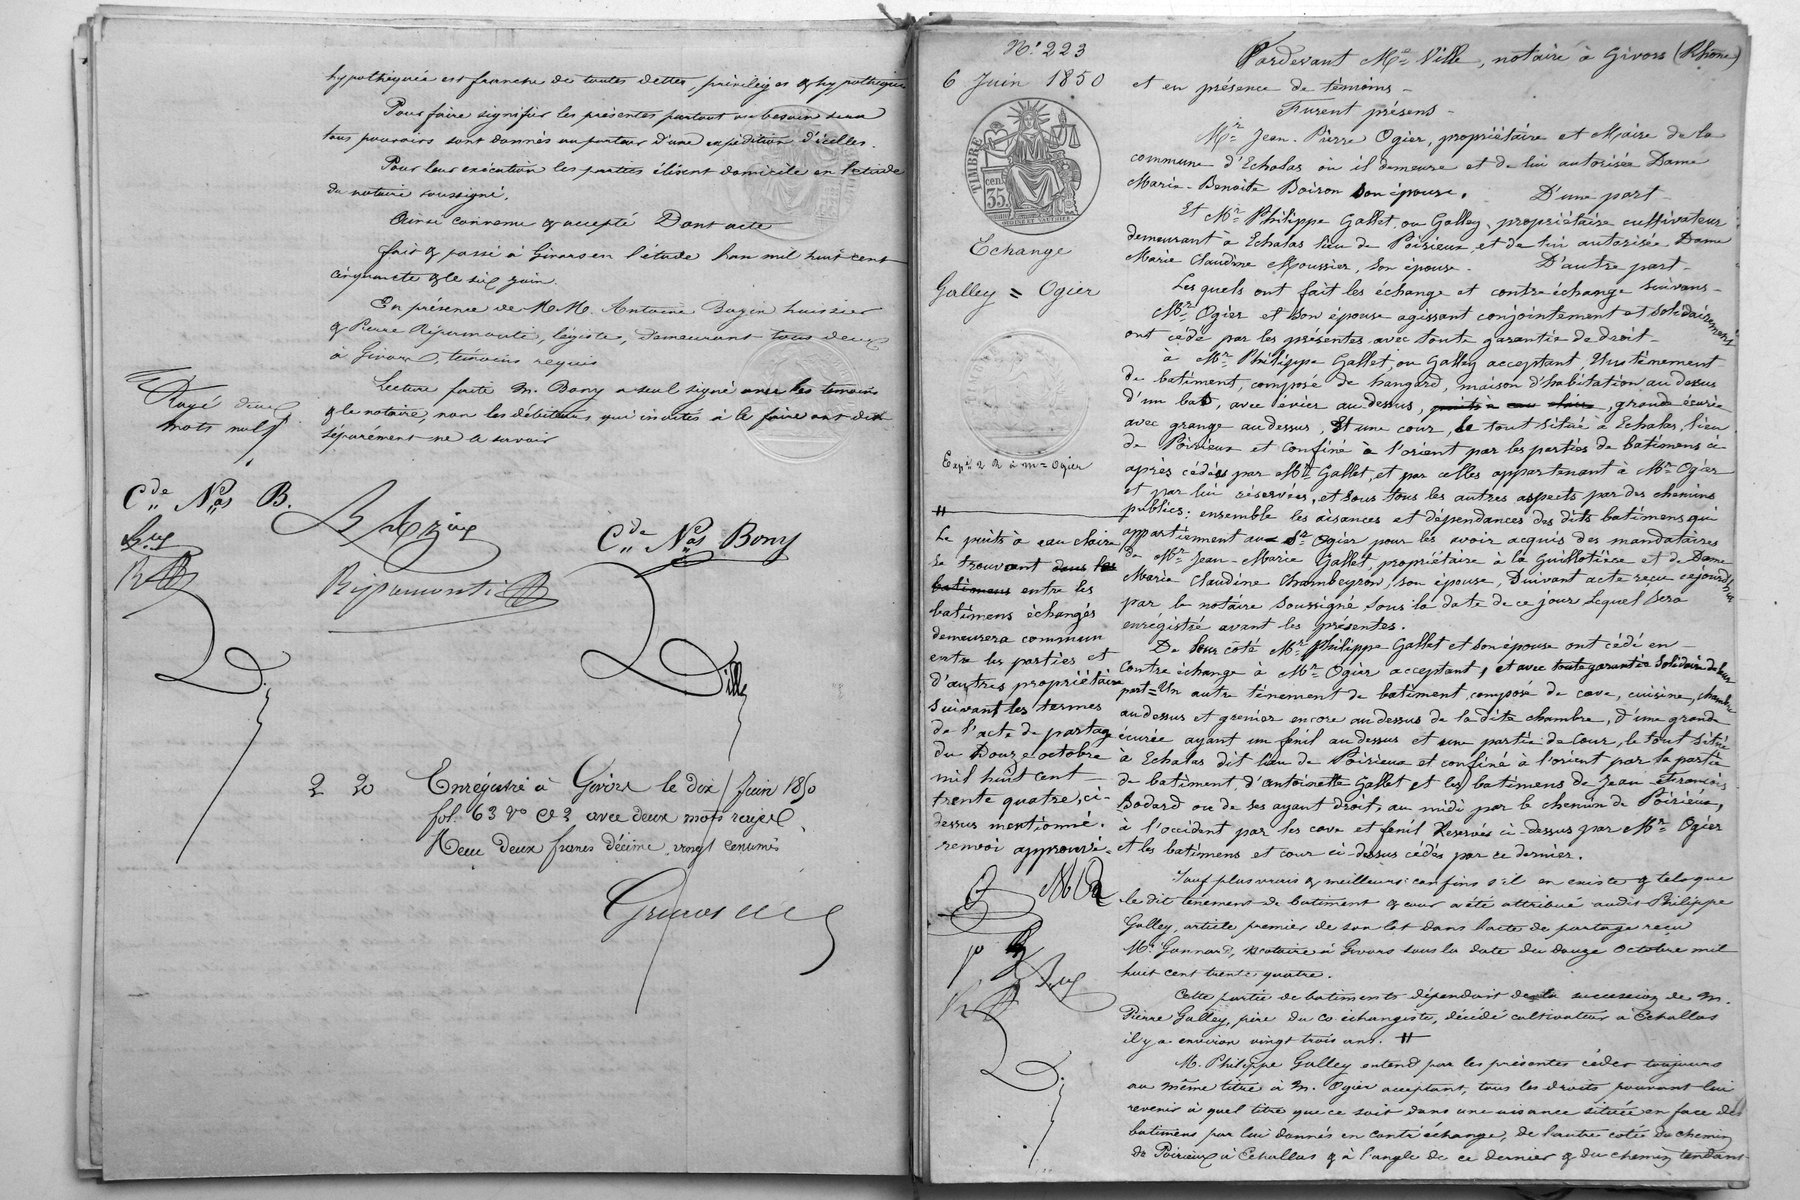 hypothéquée est franche de toutes dettes, privilèges & hypothèques
Pour faire signifier les présentes partout où besoin sera
tous pouvoirs sont donnés au porteur d'une expédition d'icelles.
Pour leur exécution les parties élisent domicile en l'étude
du notaire soussigné.
Ainsi convenu & accepté Dont acte
fait & passé à Givors en l'étude l'an mil huit cent
cinquante & le six juin
En présence de M.M. Antoine Bazin huissier
& Pierre Répamonti, légiste, demeurant tous deux
à Givors, témoins requis
Lecture faite M. Bony a seul signé avec les témoins
& le notaire, non les débiteurs, qui invités à le faire ont dit
séparément ne le savoir
Rayé deux
mots nuls
C.de N.as B.
C.de N.as Bony
Ripamonti
Ville
2 20 Enregistré à Givors le dix Juin 1850
fol. 63 Vo C 2 avec deux mots rayés
Reçu deux francs décime vingt centimes
No. 223
6 Juin 1850
TIMBRE
35 cent
Echange
Galley = Ogier
Exp. 2 R à Mr Ogier
Pardevant Me Ville, notaire à Givors (Rhône)
et en présence de témoins -
Furent présens -
Mr. Jean-Pierre Ogier, propriétaire et Maire de la
commune d'Echalas où il demeure et de lui autorisée Dame
Marie-Benoite Boiron son épouse. D'une part -
Et Mr. Philippe Gallet, ou Galley, propriétaire cultivateur
demeurant à Echalas lieu de Poirieux et de lui autorisée Dame
Marie Claudine Moussier, son épouse. D'autre part -
Lesquels ont fait les échange et contre échange suivans -
Mr. Ogier et son épouse agissant conjointement et solidairement
ont cédé par les présentes avec toute garantie de droit -
à Mr. Philippe Gallet, ou Galley acceptant, Un ténement
de batiment, composé de hangard, maison d'habitation au dessus
d'un bas, avec évier au dessus, puits à eau claire, grande écurie
avec grange au dessus, et une cour, le tout situé à Echalas, lieu
de Poirieux et confiné à l'orient par les parties de batimens ci
après cédées par Mr. Gallet, et par celles appartenant à Mr Ogier
et par lui réservées, et sous tous les autres aspects par des chemins
publics; ensemble les aisances et dépendances des dits batimens qui
appartiennent au Sr. Ogier pour les avoir acquis des mandataires
de Mr. Jean-Marie Gallet, propriétaire à la Guillotière et de Dame
Marie Claudine Chambeyron, son épouse, suivant acte reçu cejourd'hui
par le notaire soussigné sous la date de ce jour lequel sera
enregistré avant les présentes.
De leur côté Mr. Philippe Gallet et son épouse ont cédé en -
contre échange à Mr. Ogier acceptant, et avec toute garantie solidaire de leur
part = Un autre ténement de batiment, composé de cave, cuisine, chambre
au dessus et grenier encore au dessus de la dite chambre, d'une grande
écurie ayant un fenil au dessus et une partie de cour, le tout situé
à Echalas dit lieu de Poirieux et confiné à l'orient par la partie
de batiment, d'Antoinette Gallet et les batimens de Jean François
Bodard ou de ses ayant droit, au midi par le chemin de Poirieux,
à l'occident par les cave et fenil réservés ci-dessus par Mr. Ogier
et les batimens et cour ci-dessus cédés par ce dernier.
Sauf plus vrais & meilleurs confins s'il en existe & tels que
le dit ténement de batiment & cour a été attribué audit Philippe
Galley, article premier de son lot dans l'acte de partage reçu
Me. Jannard, notaire à Givors sous la date du douze Octobre mil
huit cent trente quatre.
Cette partie de batiments dépendait de la succession de M.
Pierre Galley, père du co échangiste, décédé cultivateur à Echallas
il y a environ vingt trois ans. #
M. Philippe Galley entend par les présentes céder toujours
au même titre à M. Ogier acceptant, tous les droits pouvant lui
revenir à quel titre que ce soit dans une aisance située en face des
batimens par lui donnés en contr'échange, de l'autre coté du chemin
de Poirieux à Echallas & à l'angle de ce dernier & du chemin tendant
#
Le puits à eau claire
se trouvant dans les
batimens entre les
batimens échangés
demeurera commun
entre les parties et
d'autres propriétaires
suivant les termes
de l'acte de partage
du Douze octobre
mil huit cent -
trente quatre, ci-
dessus mentionné.
renvoi approuvé.